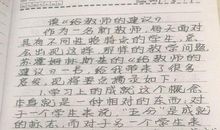 读《给教师的建议》
作为一名新教师，每天面对
具有不同性格特点的学生，总
会出现这样、那样的教学问题，
苏霍姆林斯基的《给教师的建
议》一书，给我带来了很多
启发，把精要之摘录如下，
1、学习上的成就这个概念
本身就是一种相对的东西，对
于一个学生来说，“五分”是成就
的标志，而对于另一个学生来